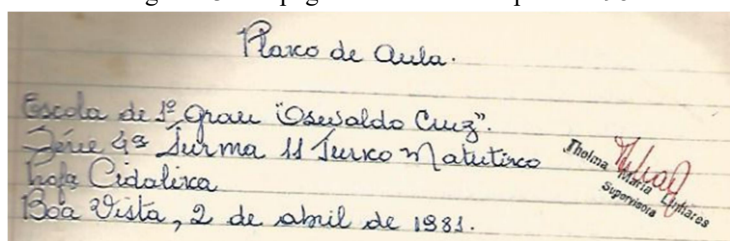 Plano de Aula.
Escola de 1º Grau "Osvaldo Cruz".
Série 4ª Turma 11 Turno Matutino
Profa Cidalina
Boa Vista, 2 de abril de 1981.
Thelma Maria Linhares
Supervisora